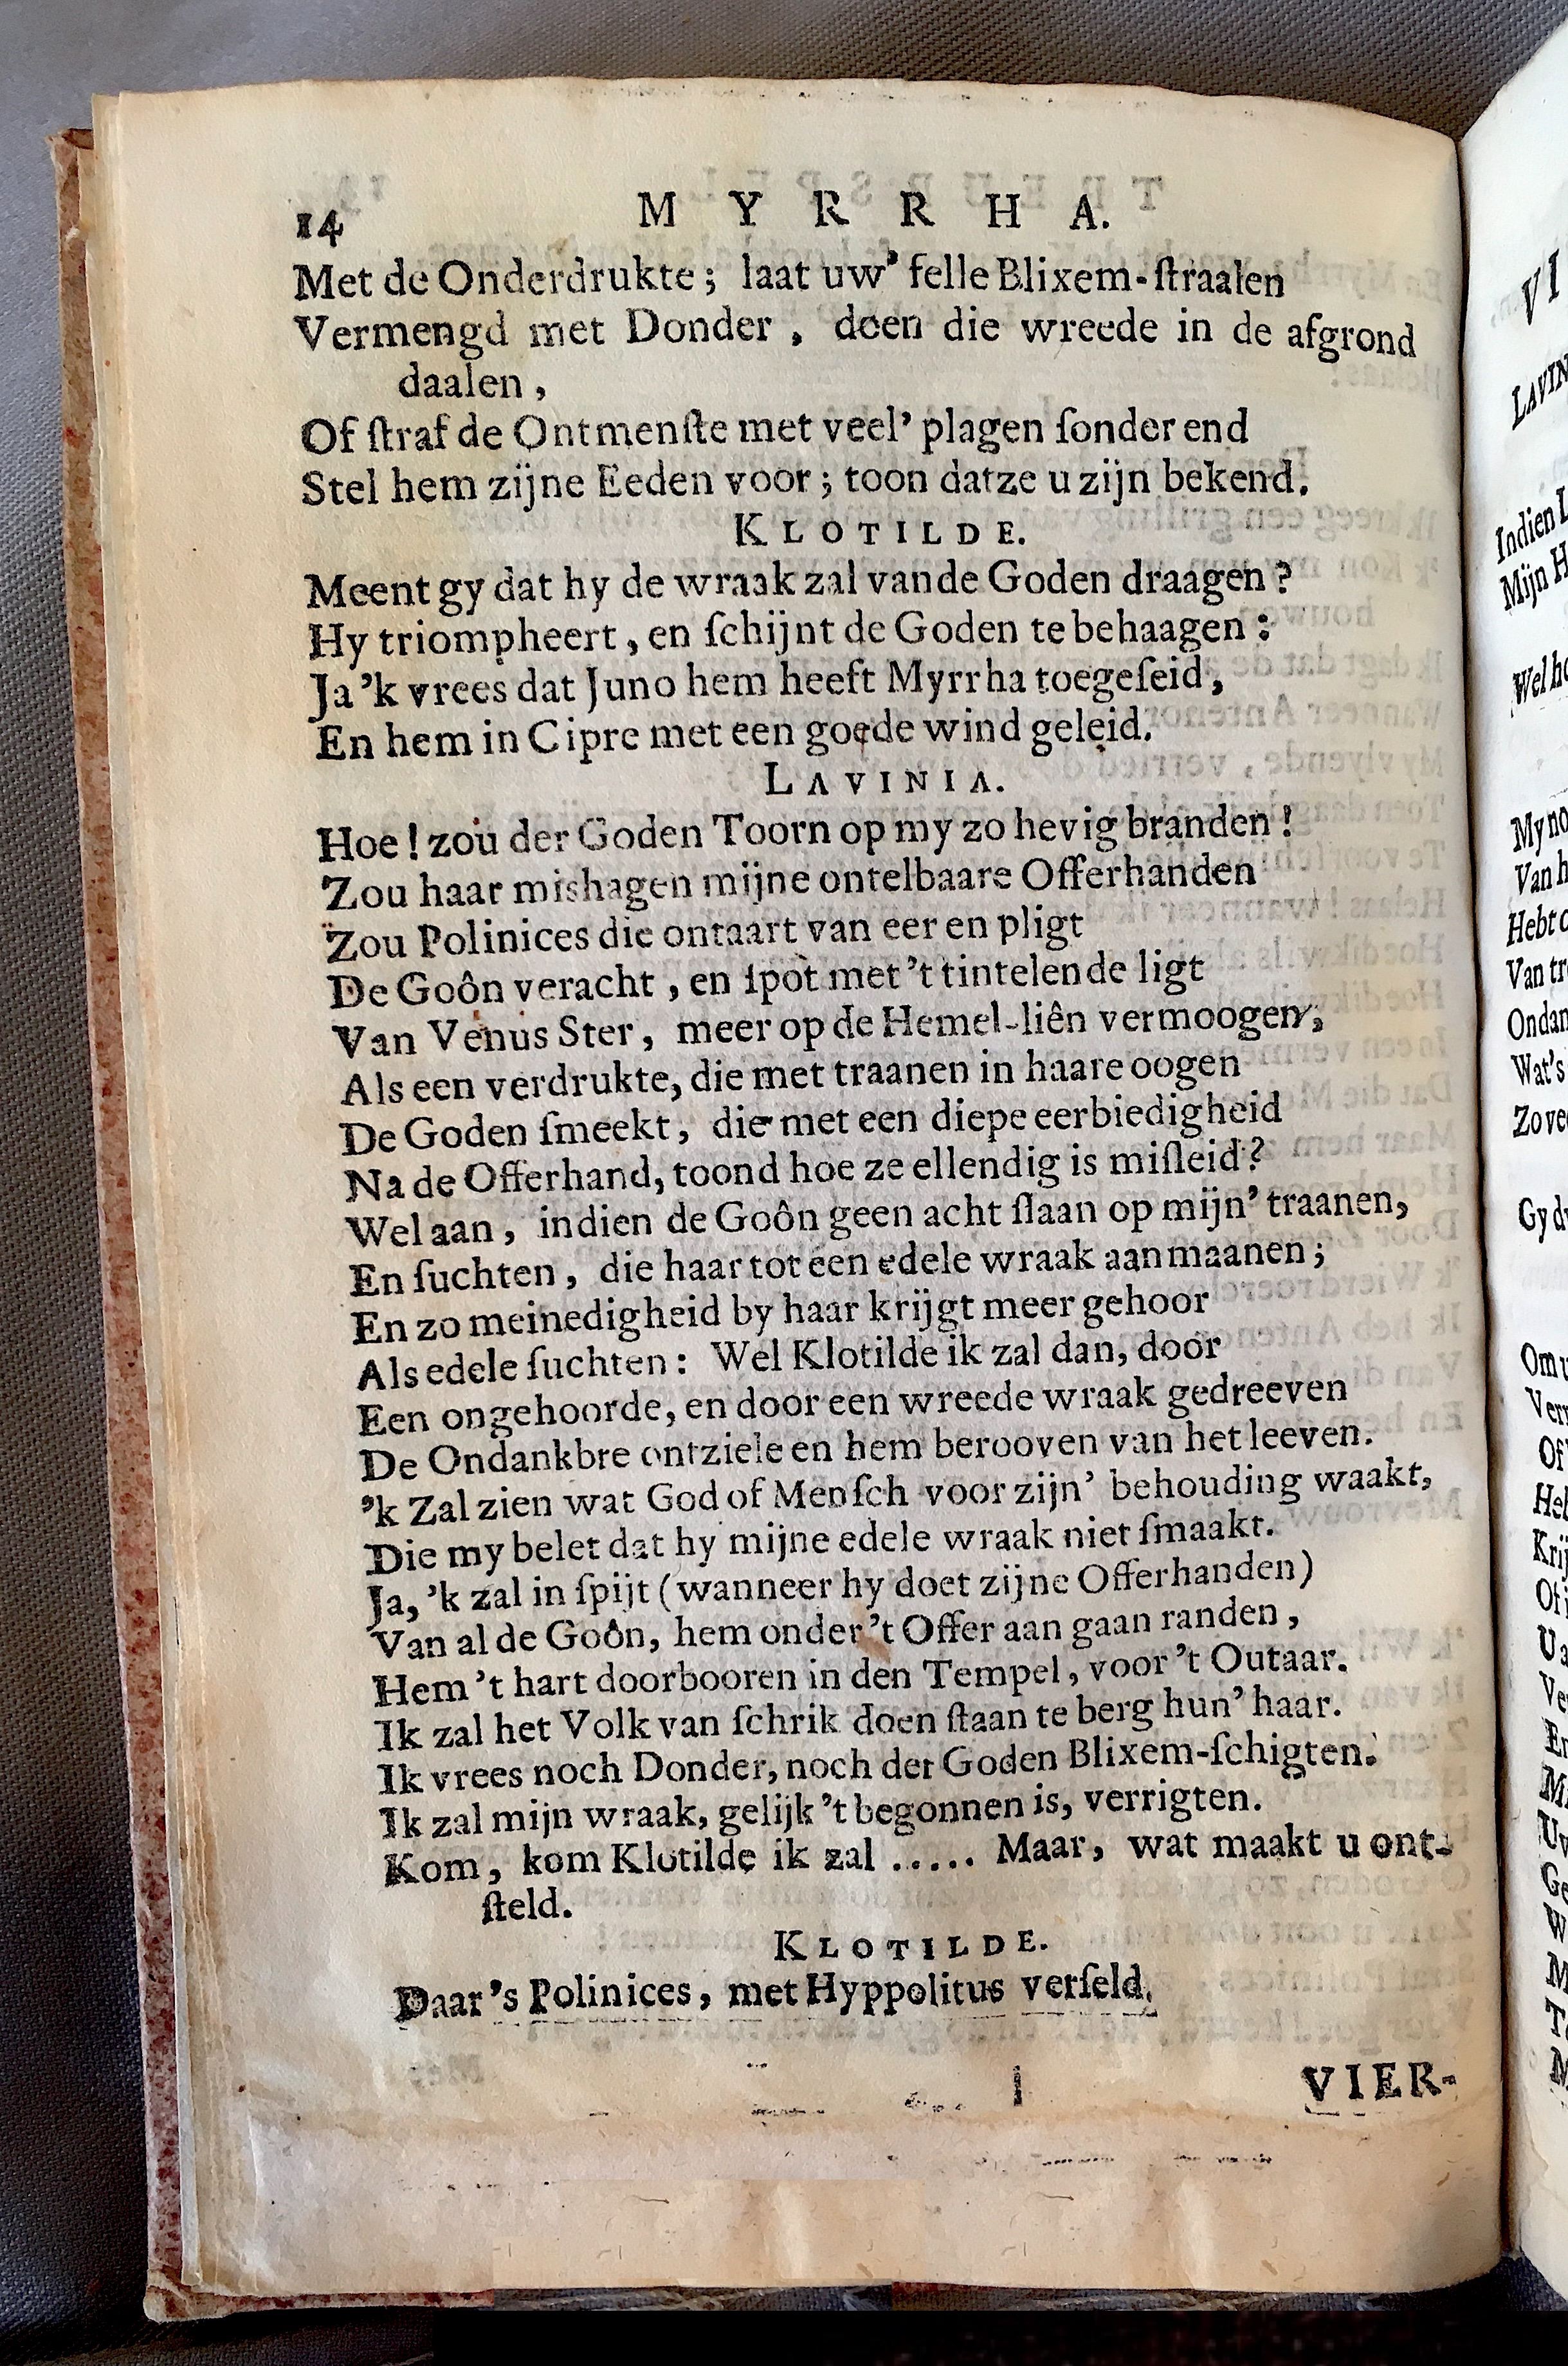 14 MYRRHA.
Met de Onderdrukte; laat uw' felle Blixem-ſtraalen
Vermengd met Donder, doen die wreede in de afgrond
daalen,
Of ſtraf de Ontmenſte met veel' plagen ſonder end
Stel hem zijne Eeden voor; toon datze u zijn bekend.
KLOTILDE.
Meent gy dat hy de wraak zal van de Goden draagen?
Hy triompheert, en ſchijnt de Goden te behaagen:
Ja 'k vrees dat Juno hem heeft Myrrha toegeſeid,
En hem in Cipre met een goede wind geleid.
LAVINIA.
Hoe! zou der Goden Toorn op my zo hevig branden!
Zou haar mishagen mijne ontelbaare Offerhanden
Zou Polinices die ontaart van eer en pligt
De Goôn veracht, en ſpot met 't tintelende ligt
Van Venus Ster, meer op de Hemel-liên vermoogen,
Als een verdrukte, die met traanen in haare oogen
De Goden ſmeekt, die met een diepe eerbiedigheid
Na de Offerhand, toond hoe ze ellendig is miſleid?
Wel aan, indien de Goôn geen acht ſlaan op mijn' traanen,
En ſuchten, die haar tot een edele wraak aanmaanen;
En zo meinedigheid by haar krijgt meer gehoor
Als edele ſuchten: Wel Klotilde ik zal dan, door
Een ongehoorde, en door een wreede wraak gedreeven
De Ondankbre ontziele en hem berooven van het leeven.
'k Zal zien wat God of Menſch voor zijn' behouding waakt,
Die my belet dat hy mijne edele wraak niet ſmaakt.
Ja, 'k zal in ſpijt (wanneer hy doet zijne Offerhanden)
Van al de Goôn, hem onder 't Offer aan gaan randen,
Hem 't hart doorbooren in den Tempel, voor 't Outaar.
Ik zal het Volk van ſchrik doen ſtaan te berg hun' haar.
Ik vrees noch Donder, noch der Goden Blixem-ſchigten.
Ik zal mijn wraak, gelijk 't begonnen is, verrigten.
Kom, kom Klotilde ik zal ..... Maar, wat maakt u ont-
ſteld.
KLOTILDE.
Daar's Polinices, met Hyppolitus verſeld.
VIER-